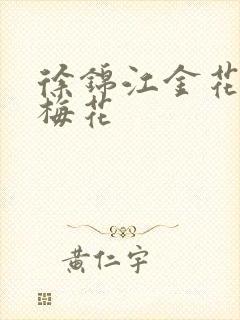 徐锦江金花
梅花
黄仁宇